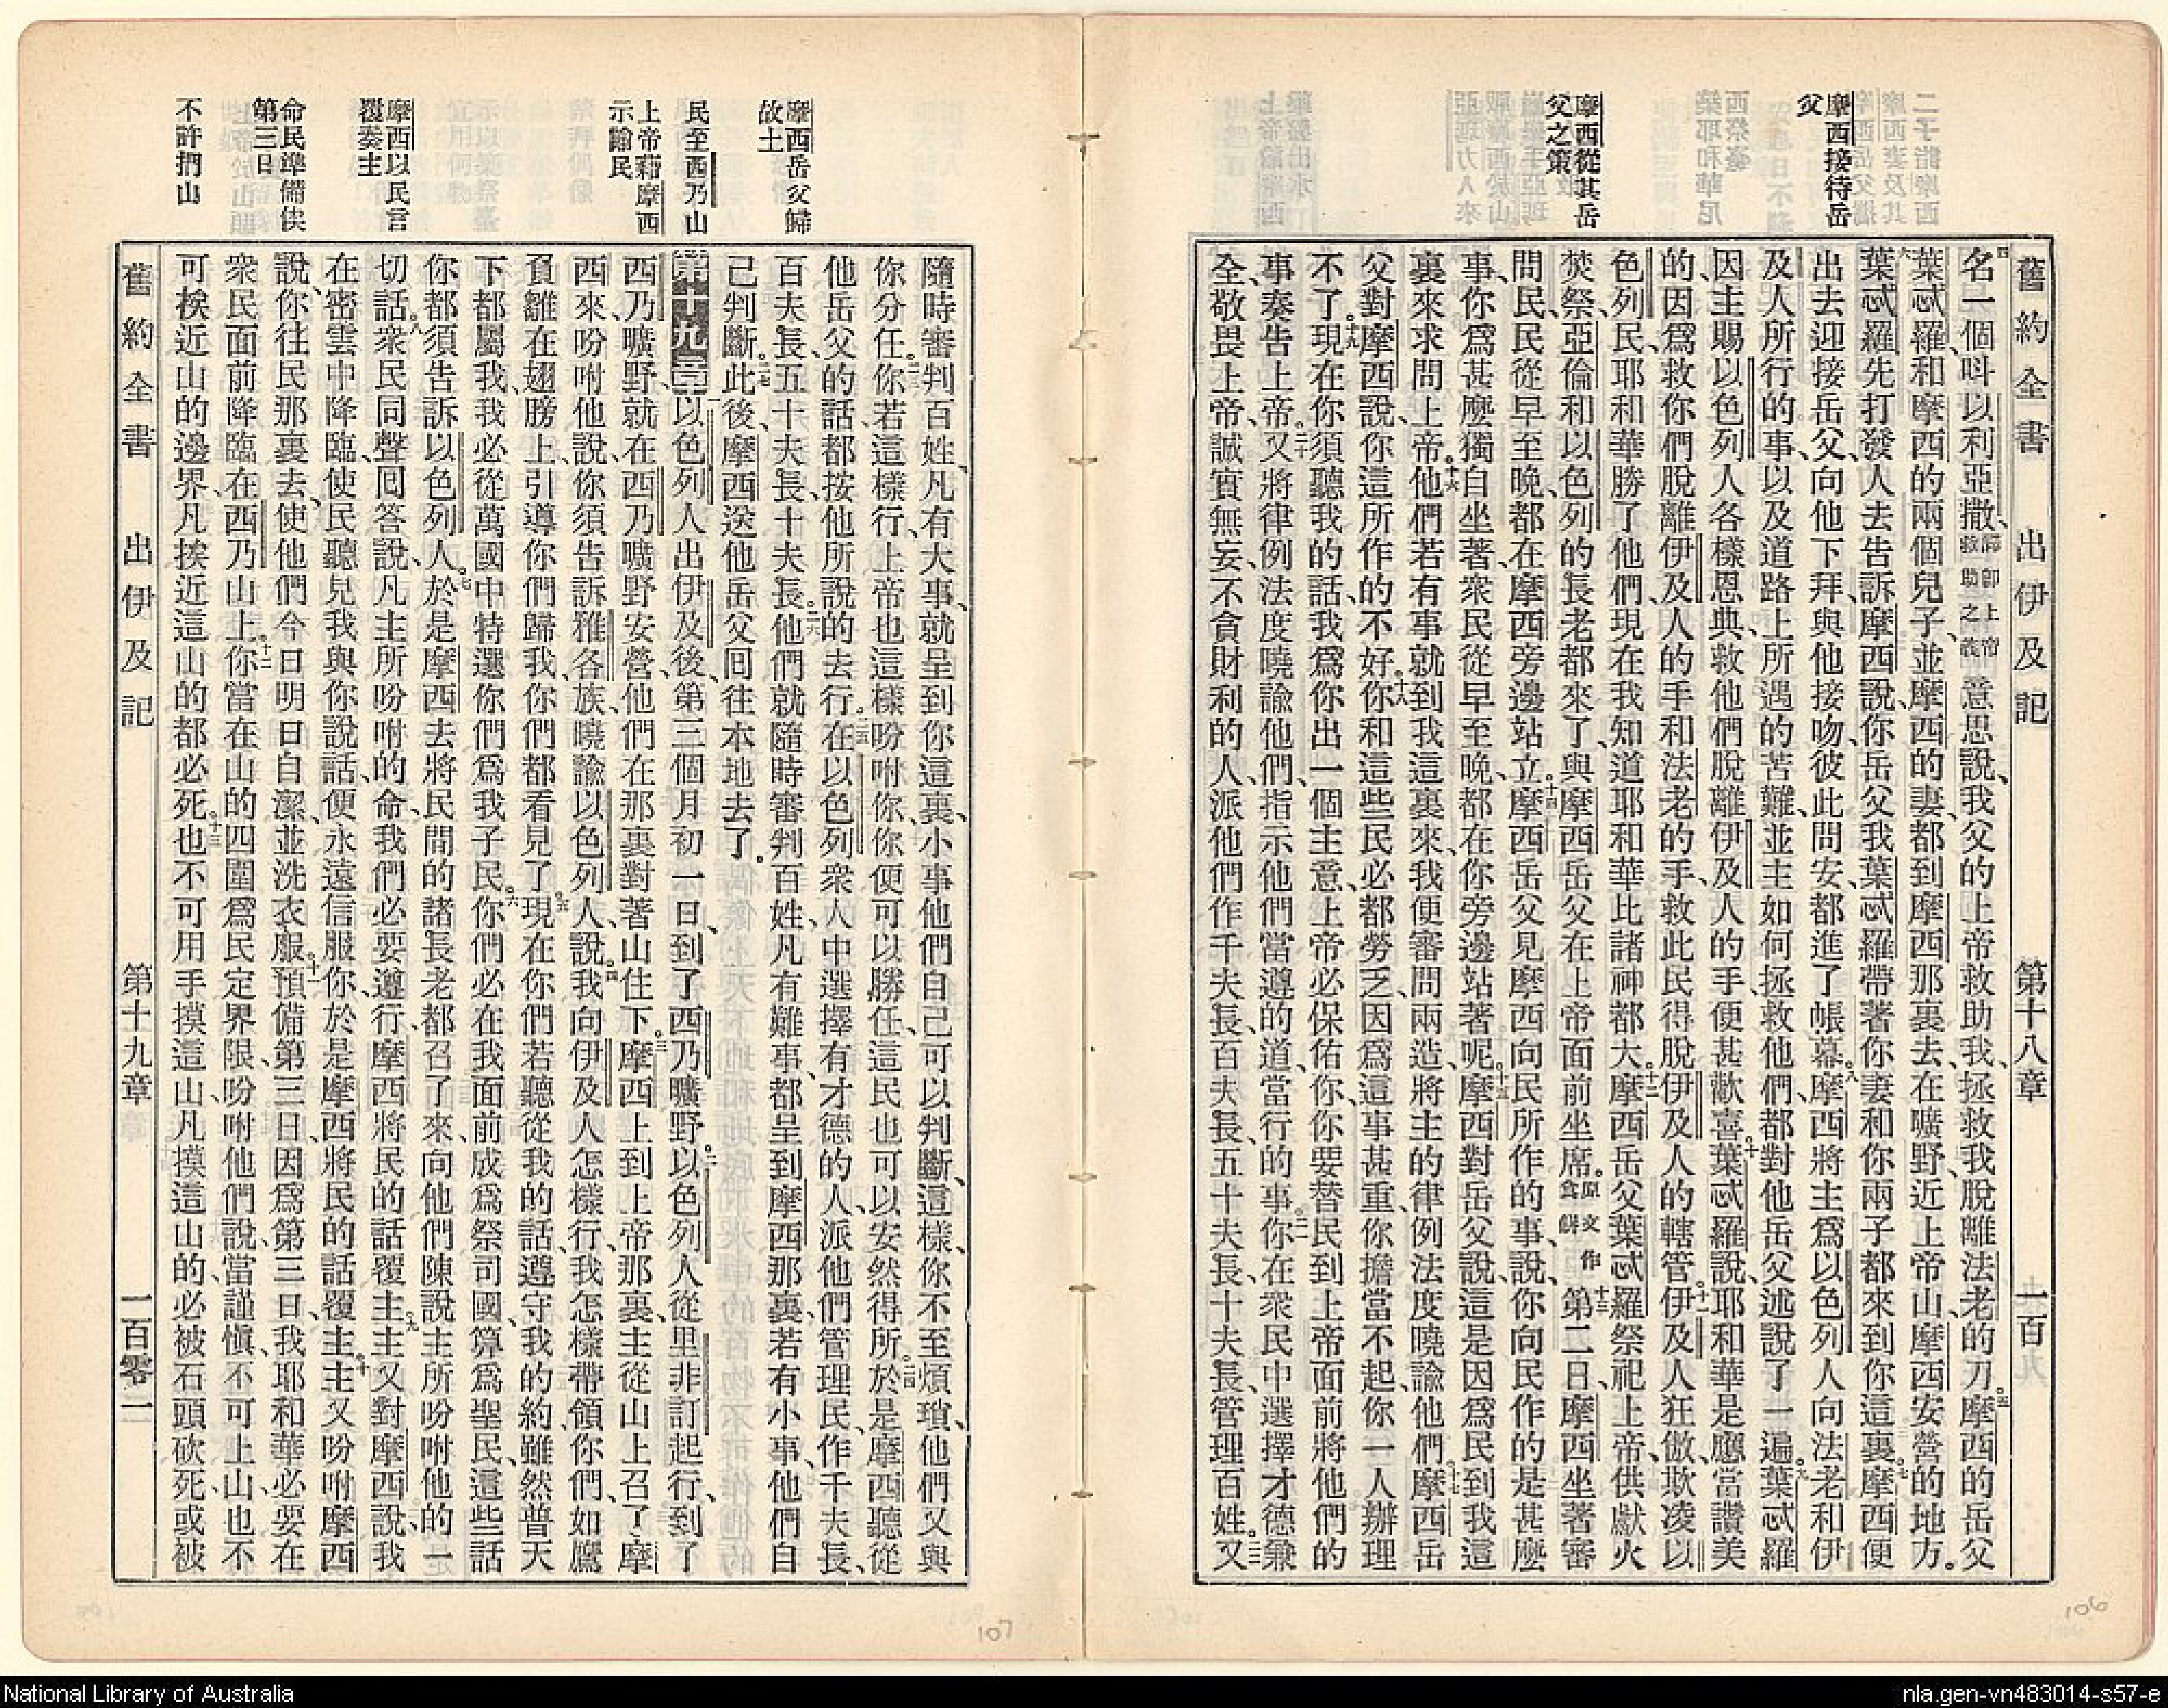 舊約全書 出伊及記 第十八章 一百
摩西接待岳
父
摩西從其岳
父之策
四名一個呌以利亞撒、歸卽上帝救助之義意思說、我父的上帝救助我、拯救我脫離法老的刀。五摩西的岳父
葉忒羅、和摩西的兩個兒子、並摩西的妻、都到摩西那裏去、在曠野、近上帝山、摩西安營的地方。
六葉忒羅先打發人去告訴摩西說、你岳父我葉忒羅帶著你妻和你兩子都來到你這裏。七摩西便
出去迎接岳父、向他下拜、與他接吻、彼此問安、都進了帳幕。八摩西將主爲以色列人向法老和伊
及人所行的事、以及道路上所遇的苦難、並主如何拯救他們、都對他岳父述說了一遍。九葉忒羅
因主賜以色列人各樣恩典、救他們脫離伊及人的手、便甚歡喜。十葉忒羅說、耶和華是應當讚美
的、因爲救你們脫離伊及人的手和法老的手、救此民得脫伊及人的轄管。十一伊及人狂傲、欺凌以
色列民、耶和華勝了他們、現在我知道耶和華比諸神都大。十二摩西岳父葉忒羅祭祀上帝、供獻火
焚祭、亞倫和以色列的長老都來了、與摩西岳父在上帝面前坐席。原文作食餠十三第二日、摩西坐著審
問民、民從早至晚、都在摩西旁邊站立。十四摩西岳父見摩西向民所作的事、說、你向民作的是甚麼
事、你爲甚麼獨自坐著、衆民從早至晚、都在你旁邊站著呢。十五摩西對岳父說、這是因爲民到我這
裏來求問上帝。十六他們若有事、就到我這裏來、我便審問兩造、將主的律例法度曉諭他們。十七摩西岳
父對摩西說、你這所作的不好。十八你和這些民必都勞乏、因爲這事甚重、你擔當不起、你一人辦理
不了。十九現在你須聽我的話、我爲你出一個主意、上帝必保佑你、你要替民到上帝面前、將他們的
事奏告上帝。二十又將律例法度曉諭他們、指示他們當遵的道、當行的事。二一你在衆民中選擇才德兼
全、敬畏上帝、誠實無妄、不貪財利的人、派他們作千夫長、百夫長、五十夫長、十夫長、管理百姓。二二又
摩西岳父歸
故土
民至西乃山
上帝藉摩西
示諭民
摩西以民言
覆奏主
命民準備俟
第三日
不許捫山
隨時審判百姓、凡有大事、就呈到你這裏、小事他們自己可以判斷、這樣、你不至煩瑣、他們又與
你分任。二三你若這樣行、上帝也這樣吩咐你、你便可以勝任、這民也可以安然得所。二四於是摩西聽從
他岳父的話、都按他所說的去行。二五在以色列衆人中選擇有才德的人、派他們管理民、作千夫長、
百夫長、五十夫長、十夫長。二六他們就隨時審判百姓、凡有難事、都呈到摩西那裏、若有小事、他們自
己判斷。二七此後、摩西送他岳父囘往本地去了。
第十九章 以色列人出伊及後、第三個月初一日、到了西乃曠野。二以色列人從里非訂起行、到了
西乃曠野、就在西乃曠野安營、他們在那裏對著山住下。三摩西上到上帝那裏、主從山上召了摩
西來、吩咐他說、你須告訴雅各族、曉諭以色列人、說。四我向伊及人怎樣行、我怎樣帶領你們、如鷹
負雛在翅膀上、引導你們歸我、你們都看見了。五現在你們若聽從我的話、遵守我的約、雖然普天
下都屬我、我必從萬國中特選你們爲我子民。六你們必在我面前成爲祭司國、算爲聖民、這些話
你都須告訴以色列人。七於是摩西去將民間的諸長老都召了來、向他們陳說主所吩咐他的一
切話。八衆民同聲囘答說、凡主所吩咐的命、我們必要遵行、摩西將民的話覆主。九主又對摩西說、我
在密雲中降臨、使民聽見我與你說話、便永遠信服你、於是摩西將民的話覆主。十主又吩咐摩西
說、你往民那裏去、使他們今日明日自潔、並洗衣服。十一預備第三日、因爲第三日、我耶和華必要在
衆民面前降臨在西乃山上。十二你當在山的四圍爲民定界限、吩咐他們說、當謹愼、不可上山、也不
可挨近山的邊界、凡挨近這山的都必死。十三也不可用手摸這山、凡摸這山的、必被石頭砍死、或被
舊約全書 出伊及記 第十九章 一百零二
107
106
National Library of Australia
nla.gen-vn483014-s57-e